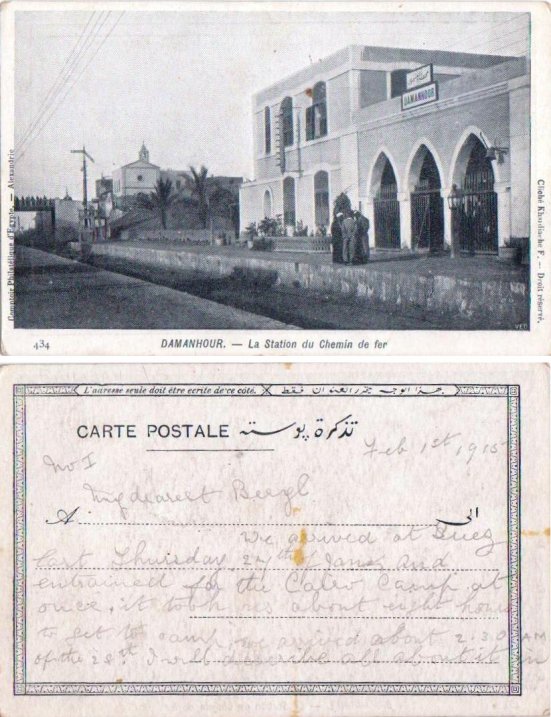 محطة دمنهور
DAMANHOUR
Comptoir Philatélique d'Egypte. — Alexandrie
Cliché Khardiache F. — Droit réservé.
VED
434 DAMANHOUR. — La Station du Chemin de fer
L'adresse seule doit être ecrite de ce côté.
هذا الوجه يحرر العنوان فقط
CARTE POSTALE تذكرة پوسته
Feb 1st 1915
No I
My dearest
A الى
We arrived at Suez
last Thursday 27th of Jany and
entrained for the Camp at
once, it took us about eight hours
to get to camp, we arrived about 2.30 AM
of the 28st. I will describe all about it in